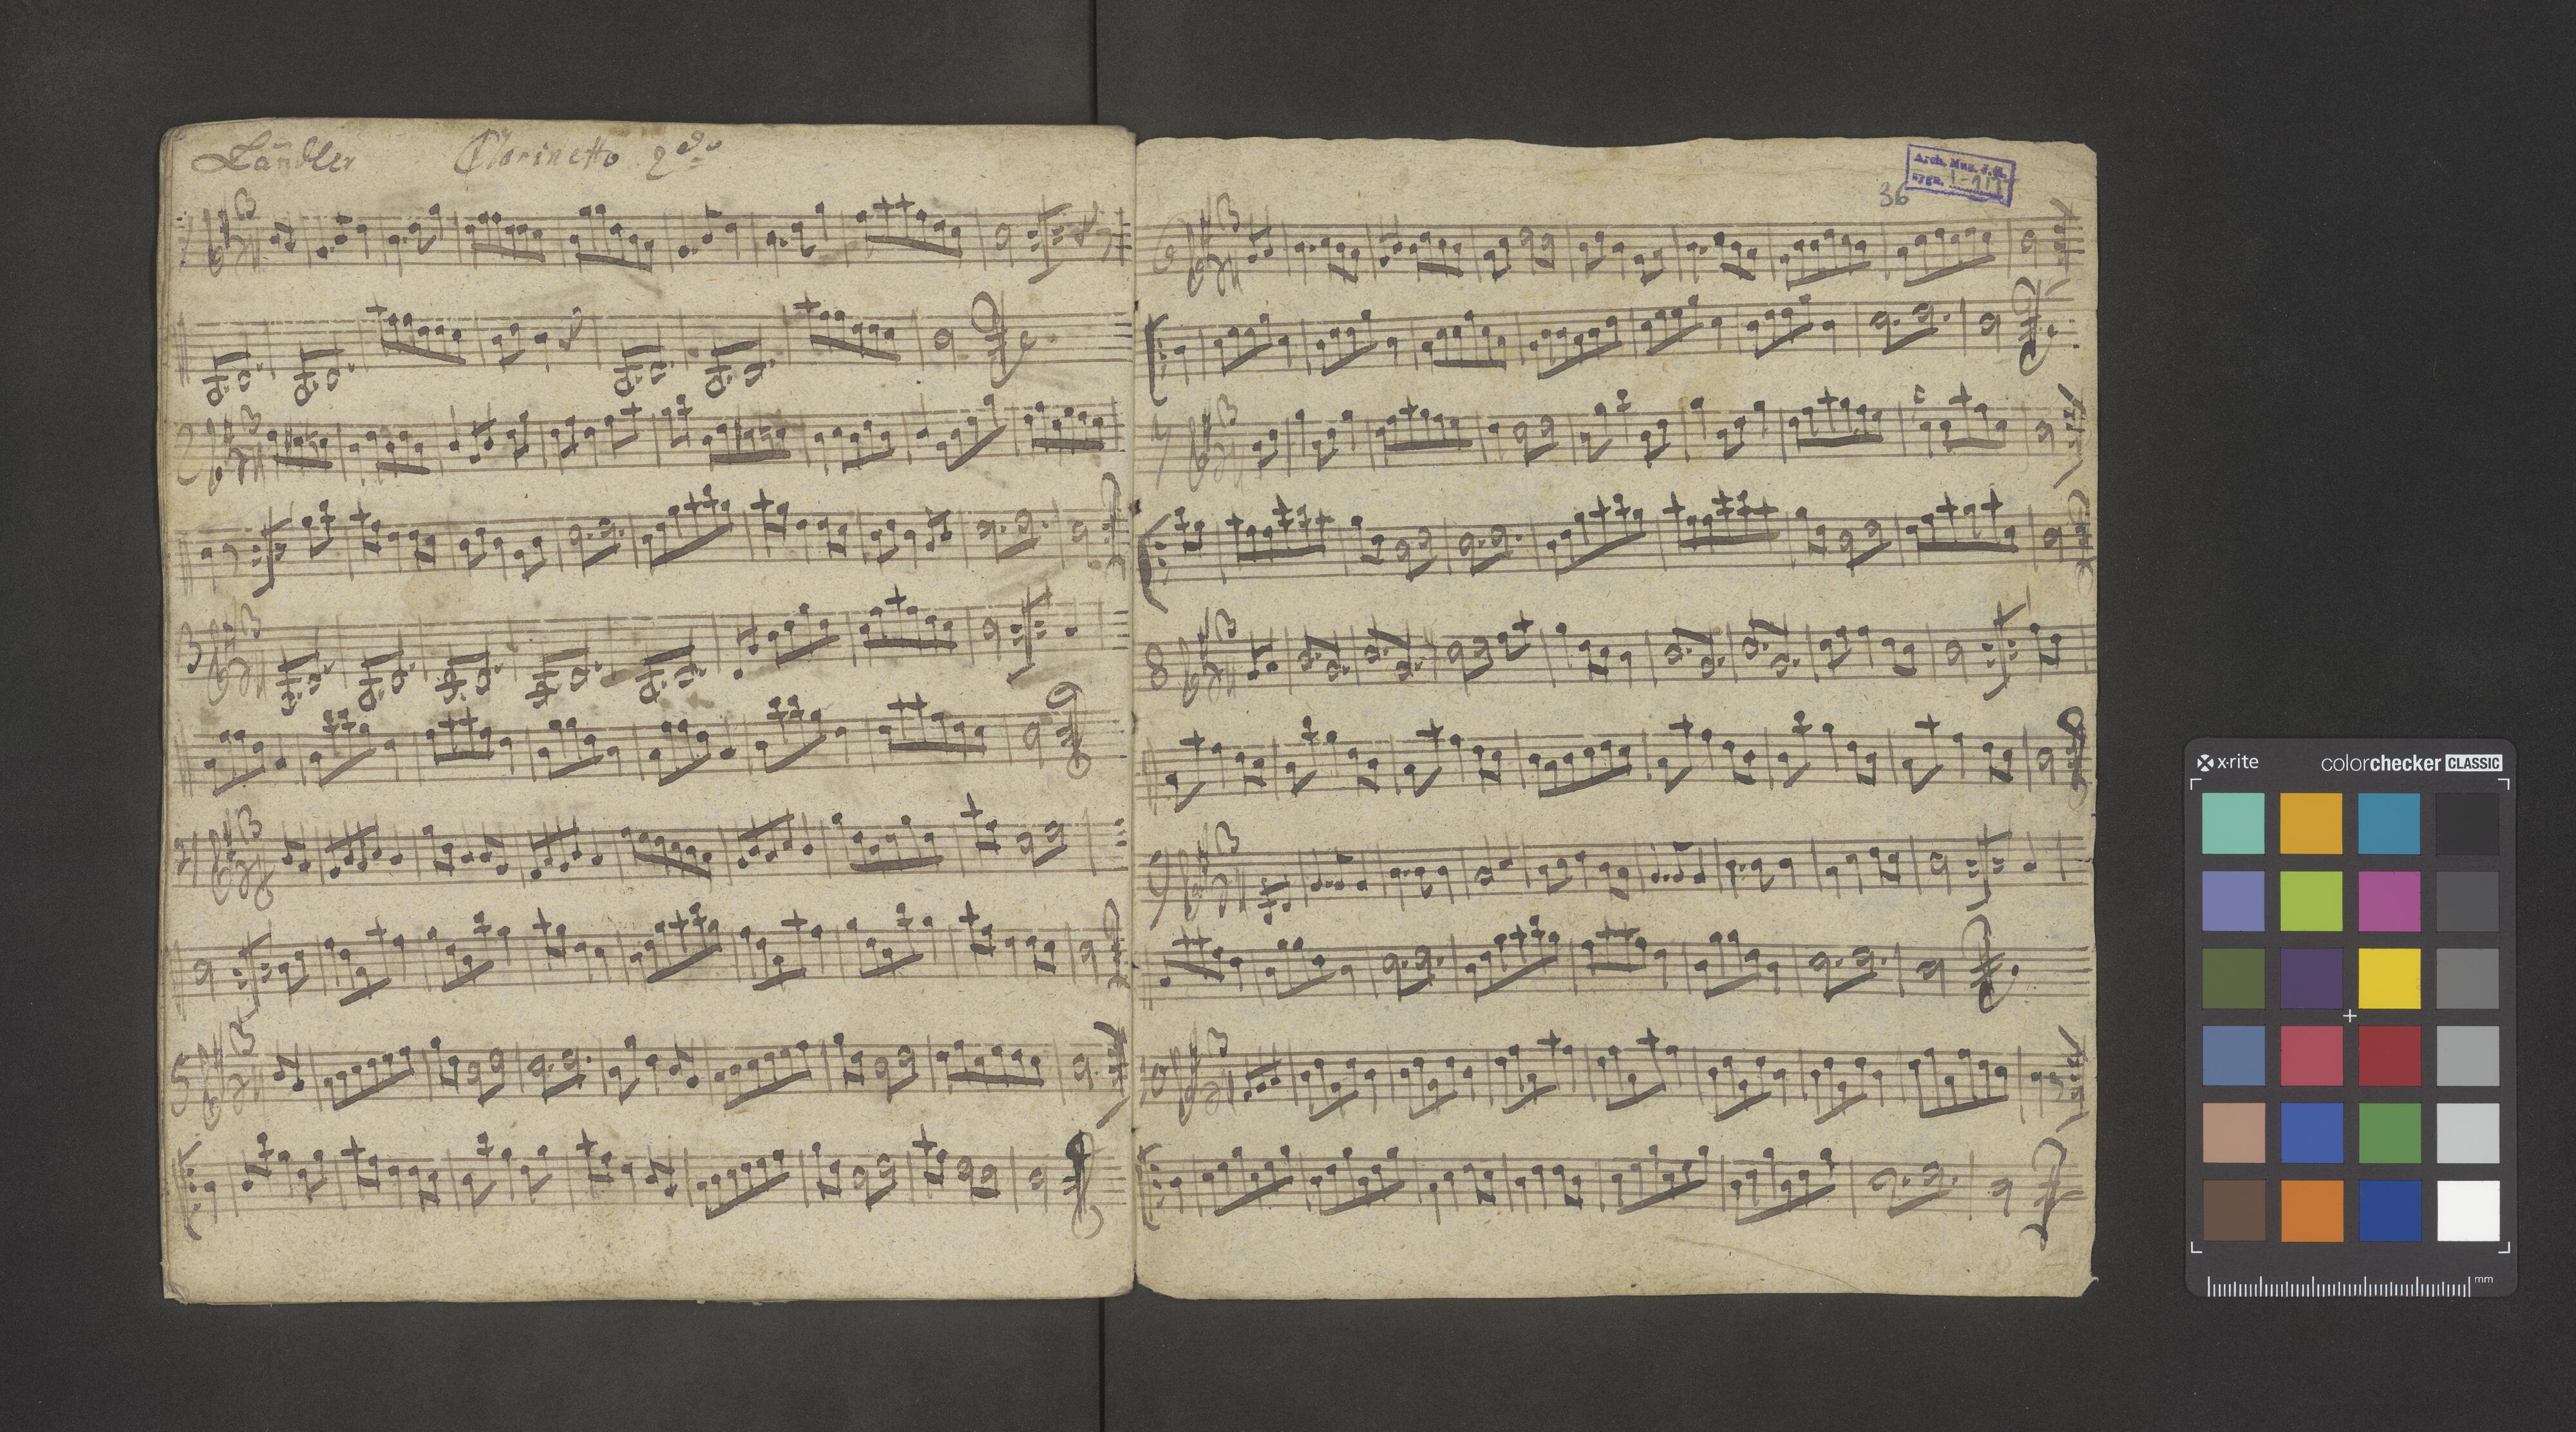 Ländler Clarinetto 2do
1
2
3
4
5
36
Arch. Muz. J.G.
sygn.
6
7
8
9
10
x·rite colorchecker CLASSIC
mm